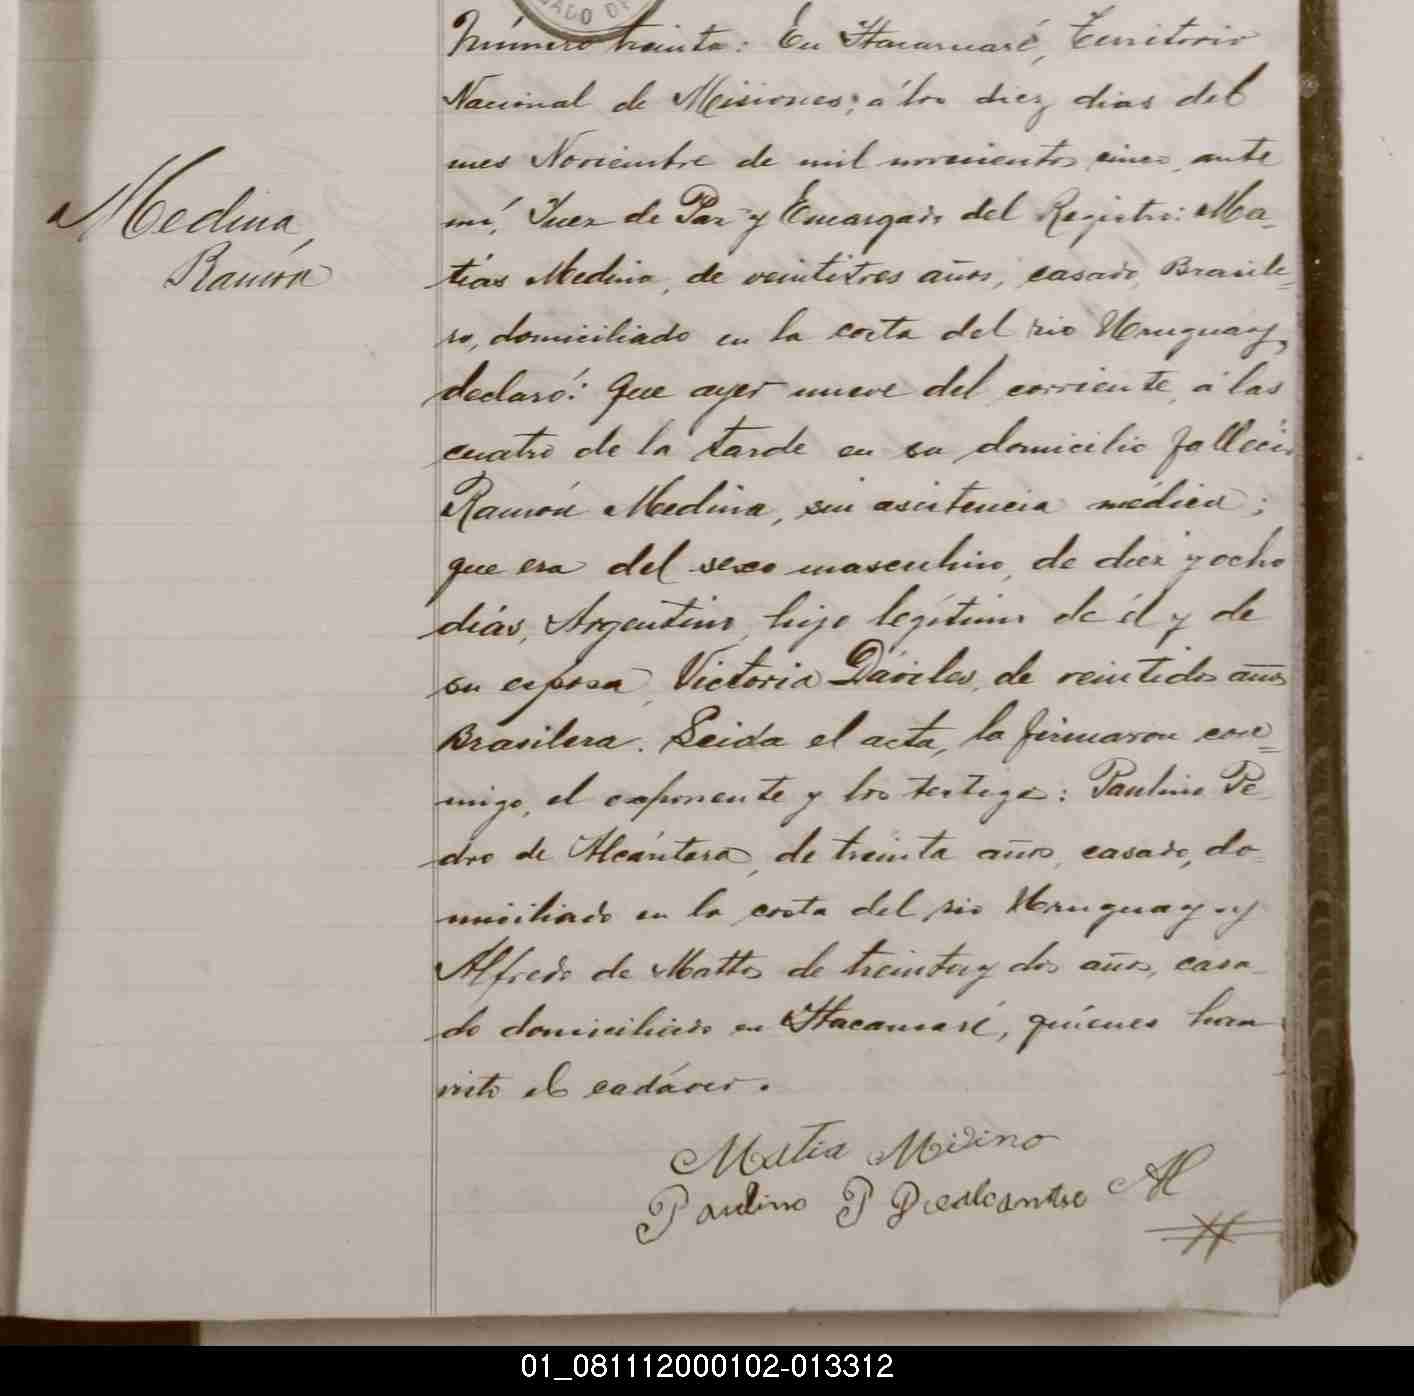 GADO DE
Número treinta: En Itacaruaré, Territorio
Nacional de Misiones; á los diez dias del
mes Noviembre de mil novecientos cinco, ante
mí, Juez de Paz y Encargado del Registro: Ma-
tías Medina, de veintitres años, casado, Brasile=
ro, domiciliado en la costa del rio Uruguay,
declaró: Que ayer nueve del corriente, á las
cuatro de la tarde en su domicilio falleció
Medina,
Ramón
Ramón Medina, sin asistencia médica;
que era del sexo masculino, de diez y ocho
dias, Argentino, hijo legítimo de él y de
su esposa, Victoria Dáviles, de veintidos años
Brasilera. Leida el acta, la firmaron con=
migo, el exponente y los testigos: Paulino Pe
dro de Alcántara, de treinta años, casado, do=
miciliado en la costa del rio Uruguay y
Alfredo de Mattos de treinta y dos años, casa-
do domiciliado en Itacaruaré, quiénes han
visto el cadáver.
Matia Midino
Paulino P Dealcantre
01_081112000102-013312